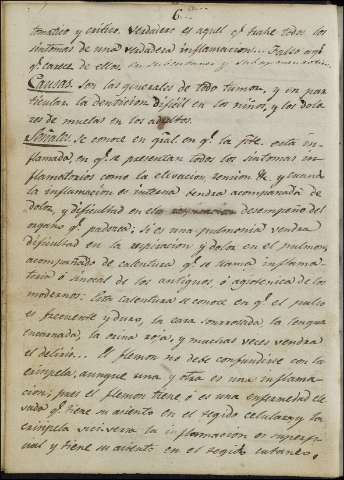 6
tomatico y critico. Verdadero es aquel qᵉ trahe todos los
sintomas de una verdadera inflamacion... Falso aql
qᵉ carece de ellos.
Causas. Son las generales de todo tumor, y en par
ticular, la denticion dificil en los niños, y los dolo
res de muelas en los adultos.
Señales. Se conoce en gral en qᵉ la pte. está in
flamada, en qᵉ se presentan todos los sintomas in
flamatorios como la elevacion tension &c. y cuando
la inflamacion es interna vendra acompañada de
dolor, y dificultad en el desempeño del
organo qᵉ padezca; si es una pulmonia vendra
dificultad en la respiracion y dolor en el pulmon,
acompañado de calentura qᵉ se llama inflama-
toria ó sinocal de los antiguos ó agioténica de los
modernos: Esta calentura se conoce en qᵉ el pulso
es frecuente y duro, la cara sonrosada, la lengua
encarnada, la orina roja, y muchas veces vendra
el delirio... El flemon no debe confundirse con la
erisipela, aunque una y otra es una inflama-
cion; pues el flemon tiene ó es una enfermedad ele
vada qᵉ tiene su asiento en el tegido celular, y la
erisipela viciversa la inflamacion es superfi-
cial y tiene su asiento en el tegido cutaneo.